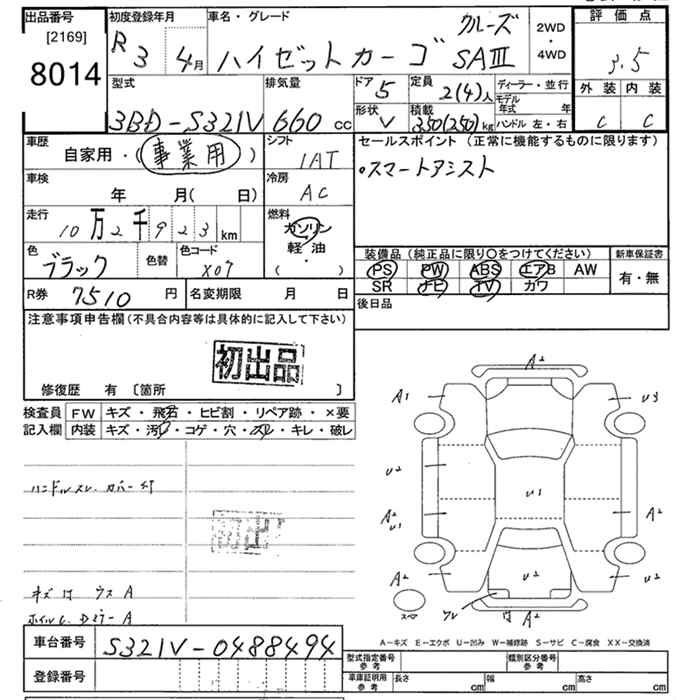 出品番号
[2169]
8014
初度登録年月
R 3 4月
車名・グレード
ハイゼットカーゴ クルーズ SAⅢ
2WD
・
4WD
評価点
3.5
外装 内装
C C
型式
3BD-S321V
排気量
660 cc
ドア 5
定員 2(4)人
ディーラー・並行
形状 V
積載 350(250)kg
モデル年式 年
ハンドル 左・右
車歴
自家用・事業用
シフト
IAT
セールスポイント (正常に機能するものに限ります)
○スマートアシスト
車検
年 月( 日)
冷房
AC
走行
10万2千923km
燃料
ガソリン
軽・油
( ・ )
色
ブラック
色替
色コード
X07
装備品(純正品に限り○をつけてください)
新車保証書
PS PW ABS エアB AW
SR ナビ TV カワ
有・無
R券 7510円
名変期限 月 日
後日品
注意事項申告欄(不具合内容等は具体的に記入して下さい)
初出品
修復歴 有 〔箇所 〕
検査員 FW キズ・飛石・ヒビ割・リペア跡・×要
記入欄 内装 キズ・汚レ・コゲ・穴・スレ・キレ・破レ
ハンドルスレ カバー
初出
キズ ウス A
ホイル A
A2
A1 U3
U2
U1
A2 U1 A2
A2 U2 A2
A2
スペア
A-キズ E-エクボ U-凹み W-補修跡 S-サビ C-腐食 XX-交換済
車台番号 S321V-0488494
登録番号
型式指定番号 参考
類別区分番号 参考
車庫証明用 参考 長さ cm 幅 cm 高さ cm